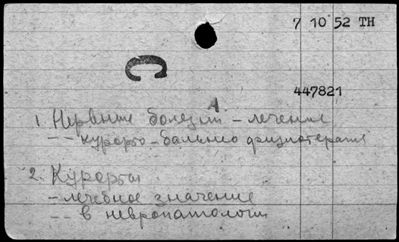 7 10 52 TH
С
447821
А
1. Нервные болезни – лечение
-- курорто-бальнео физиотерапия
2. Курорты
- лечебное значение
-- в невропатологии